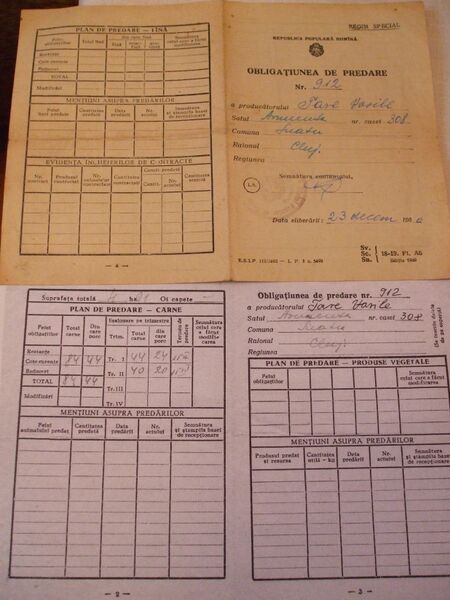 PLAN DE PREDARE — FÎNĂ
Felul obligațiilor
Total fînă
din care fînă
Semnătura celui care a făcut modificarea
Restanțe
Cote curente
Redevență
TOTAL
Modificări
MENȚIUNI ASUPRA PREDĂRILOR
Felul fînii predate
Cantitatea predată
Data predării
Nr. actului
Semnătura și ștampila bazei de recepționare
EVIDENȚA ÎNCHEIERILOR DE CONTRACTE
Nr. contract
Produsul contractat
Nr. animalelor contractate
Cantitatea contractată
Cantit. predată
Cantit.
Nr. actului
Cantitatea scutită
— 4 —
REGIM SPECIAL
REPUBLICA POPULARĂ ROMÎNĂ
OBLIGAȚIUNEA DE PREDARE
Nr. 912
a producătorului Pare Vasile
Satul nr. casei 308
Comuna
Raionul Cluj
Regiunea
Semnătura
L.S.
Data eliberării: 23 decem 195
Sv.
Sc.
Sa.
18-19. Ft. A6
Ediția
Suprafața totală ha. Oi capete
PLAN DE PREDARE — CARNE
Felul obligațiilor
Total carne
Din care porc
Eșalonare pe trimestre
Trim.
Total carne
Din care porc
Termen de predare
Semnătura celui care a făcut modificarea
Restanțe
Tr. I 44 24
Cote curente 84 44
Redevență
Tr. II 40 20
TOTAL 84 44
Tr. III
Modificări
Tr. IV
MENȚIUNI ASUPRA PREDĂRILOR
Felul animalului predat
Cantitatea predată
Data predării
Nr. actului
Semnătura și ștampila bazei de recepționare
— 2 —
Obligațiunea de predare nr. 912
a producătorului Pare Vasile
Satul nr. casei 308
Comuna
Raionul Cluj
Regiunea
PLAN DE PREDARE — PRODUSE VEGETALE
Felul obligațiilor
Semnătura celui care a făcut modificarea
MENȚIUNI ASUPRA PREDĂRILOR
Produsul predat și recursa
Cantitatea utilă - kg
Data predării
Nr. actului
Semnătura și ștampila bazei de recepționare
— 3 —